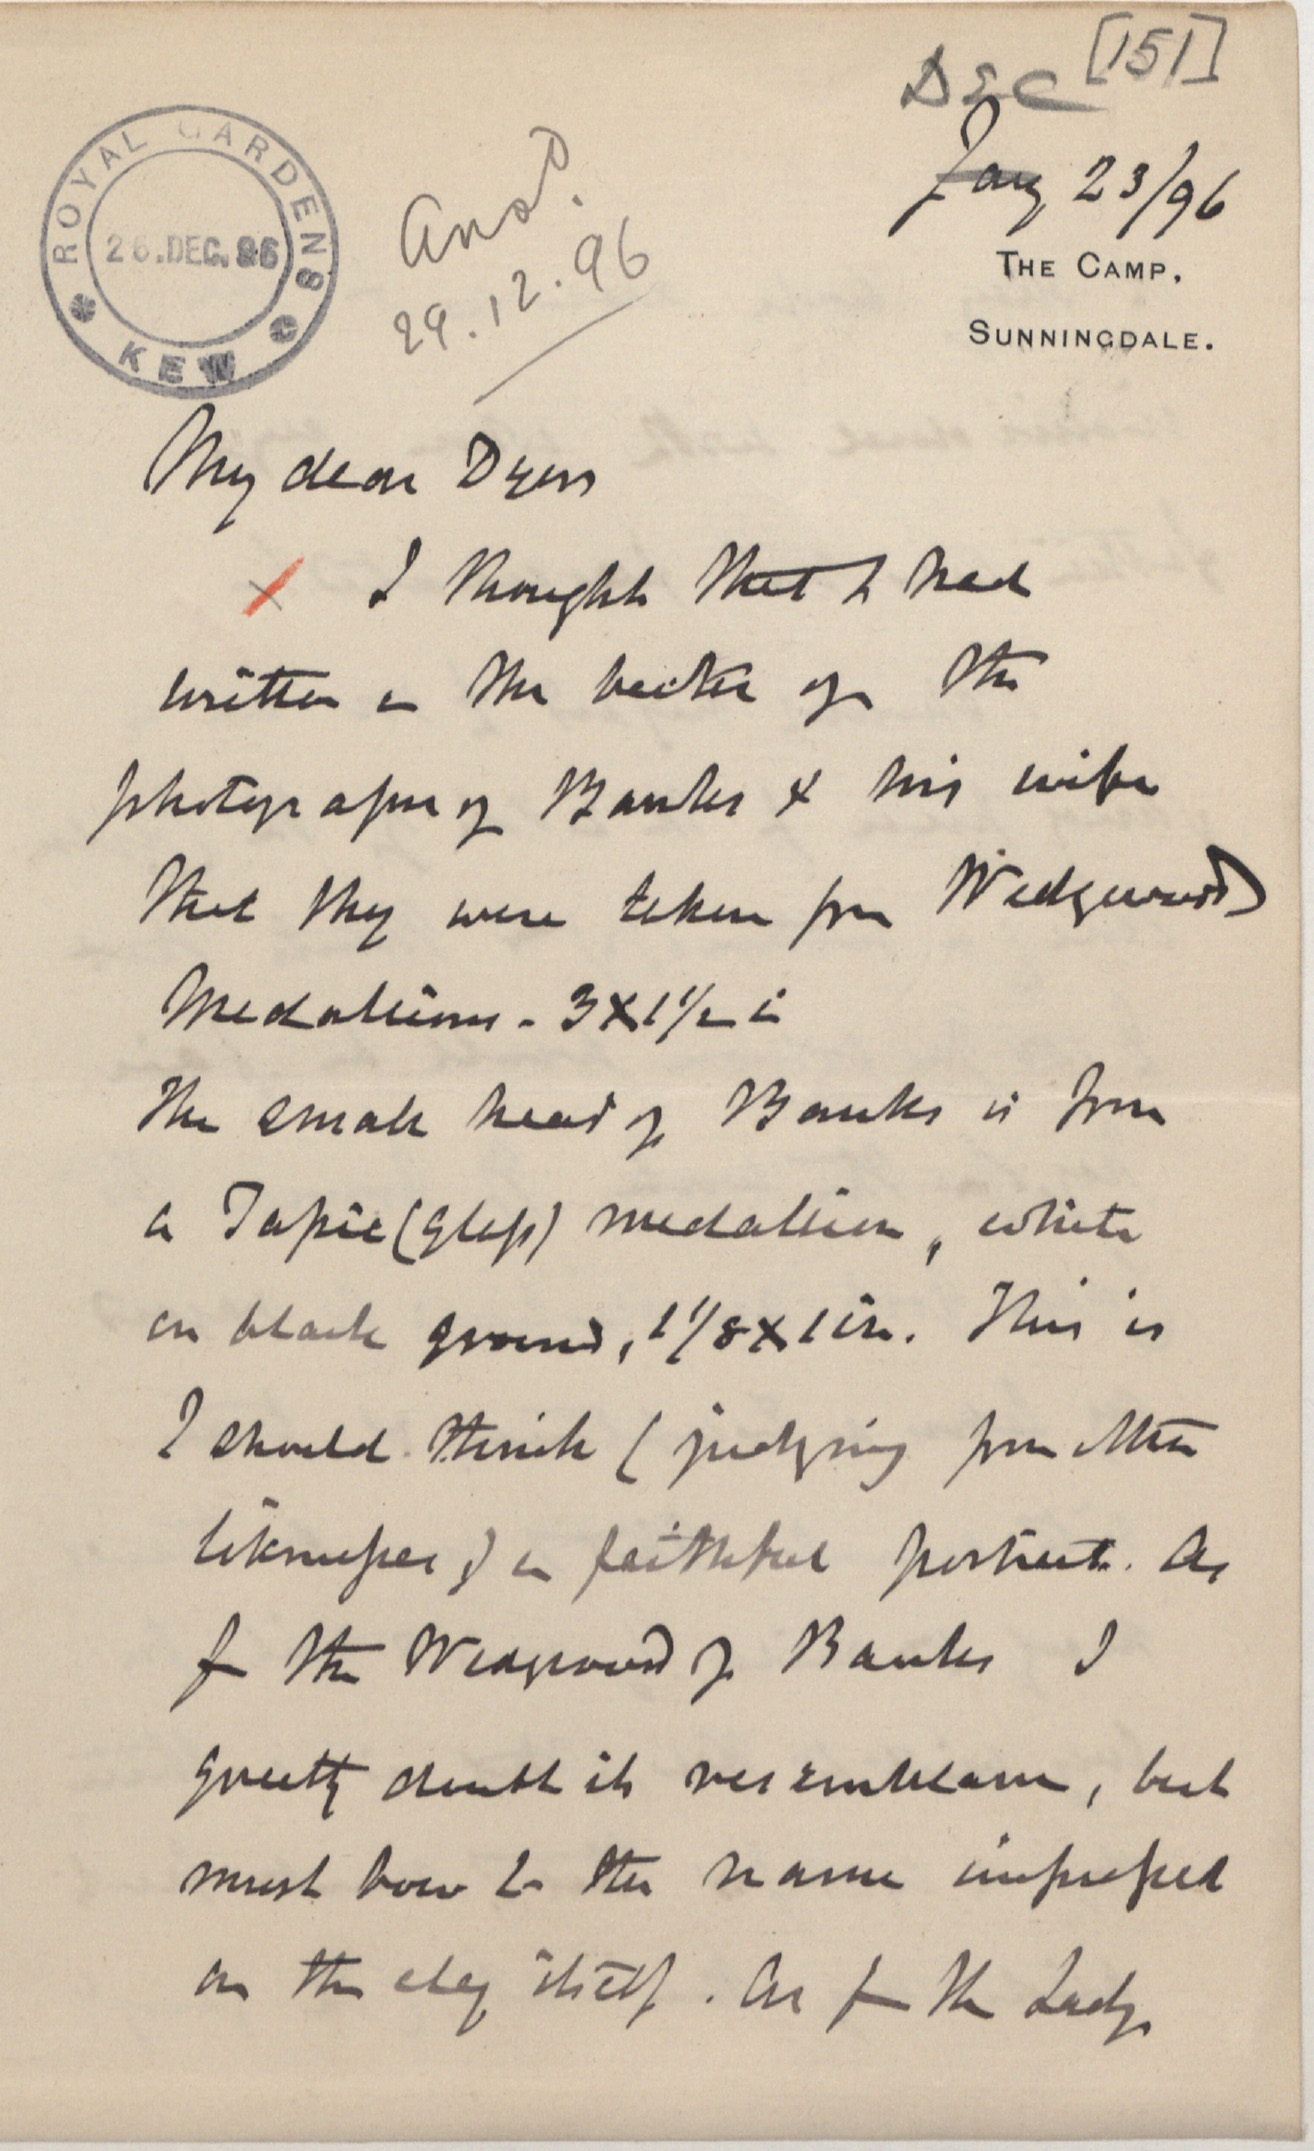 [151]
DEC
Jany 23/96
THE CAMP,
SUNNINGDALE.
ROYAL GARDENS
26.DEC.96
KEW
Ansd.
29.12.96
My dear Dyer
× I thought that I had
written on the backs of the
photographs of Banks & his wife
that they were taken from Wedgewood
Medallions - 3 x 1½ i
The small head of Banks is from
a Tassie (Glass) medallion, white
on black ground, 1 1/8 x 1 in. This is
I should think (judging from other
likenesses) a faithful portrait. As
for the Wedgwood of Banks I
greatly doubt its resemblance, but
must bow to the name impressed
on the clay itself. As for the Lady